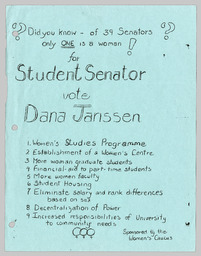 ? Did you know - of 39 Senators ?
only ONE is a woman !
for
Student Senator
vote
Dana Janssen
1 Women's Studies Programme
2 Establishment of a Women's Centre
3 More woman graduate students
4 Financial-aid to part-time students
5 More women faculty
6 Student Housing
7 Eliminate salary and rank differences
based on sex
8 Decentralisation of Power
9 Increased responsibilities of University
to community needs
Sponsored by the
Women's Caucus